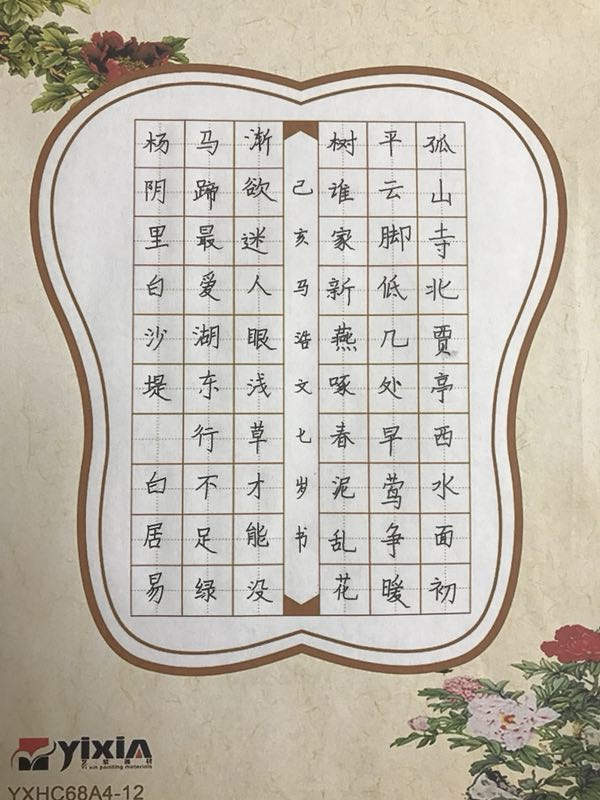 孤山寺北贾亭西水面初
平云脚低几处早莺争暖
树谁家新燕啄春泥乱花
己亥马浩文七岁书
渐欲迷人眼浅草才能没
马蹄最爱湖东行不足绿
杨阴里白沙堤 白居易
yixiA
painting materials
YXHC68A4-12